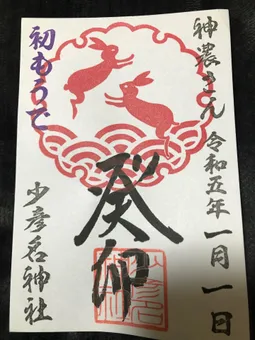 神農さん 令和五年一月一日
癸卯
初もうで
少彦名神社